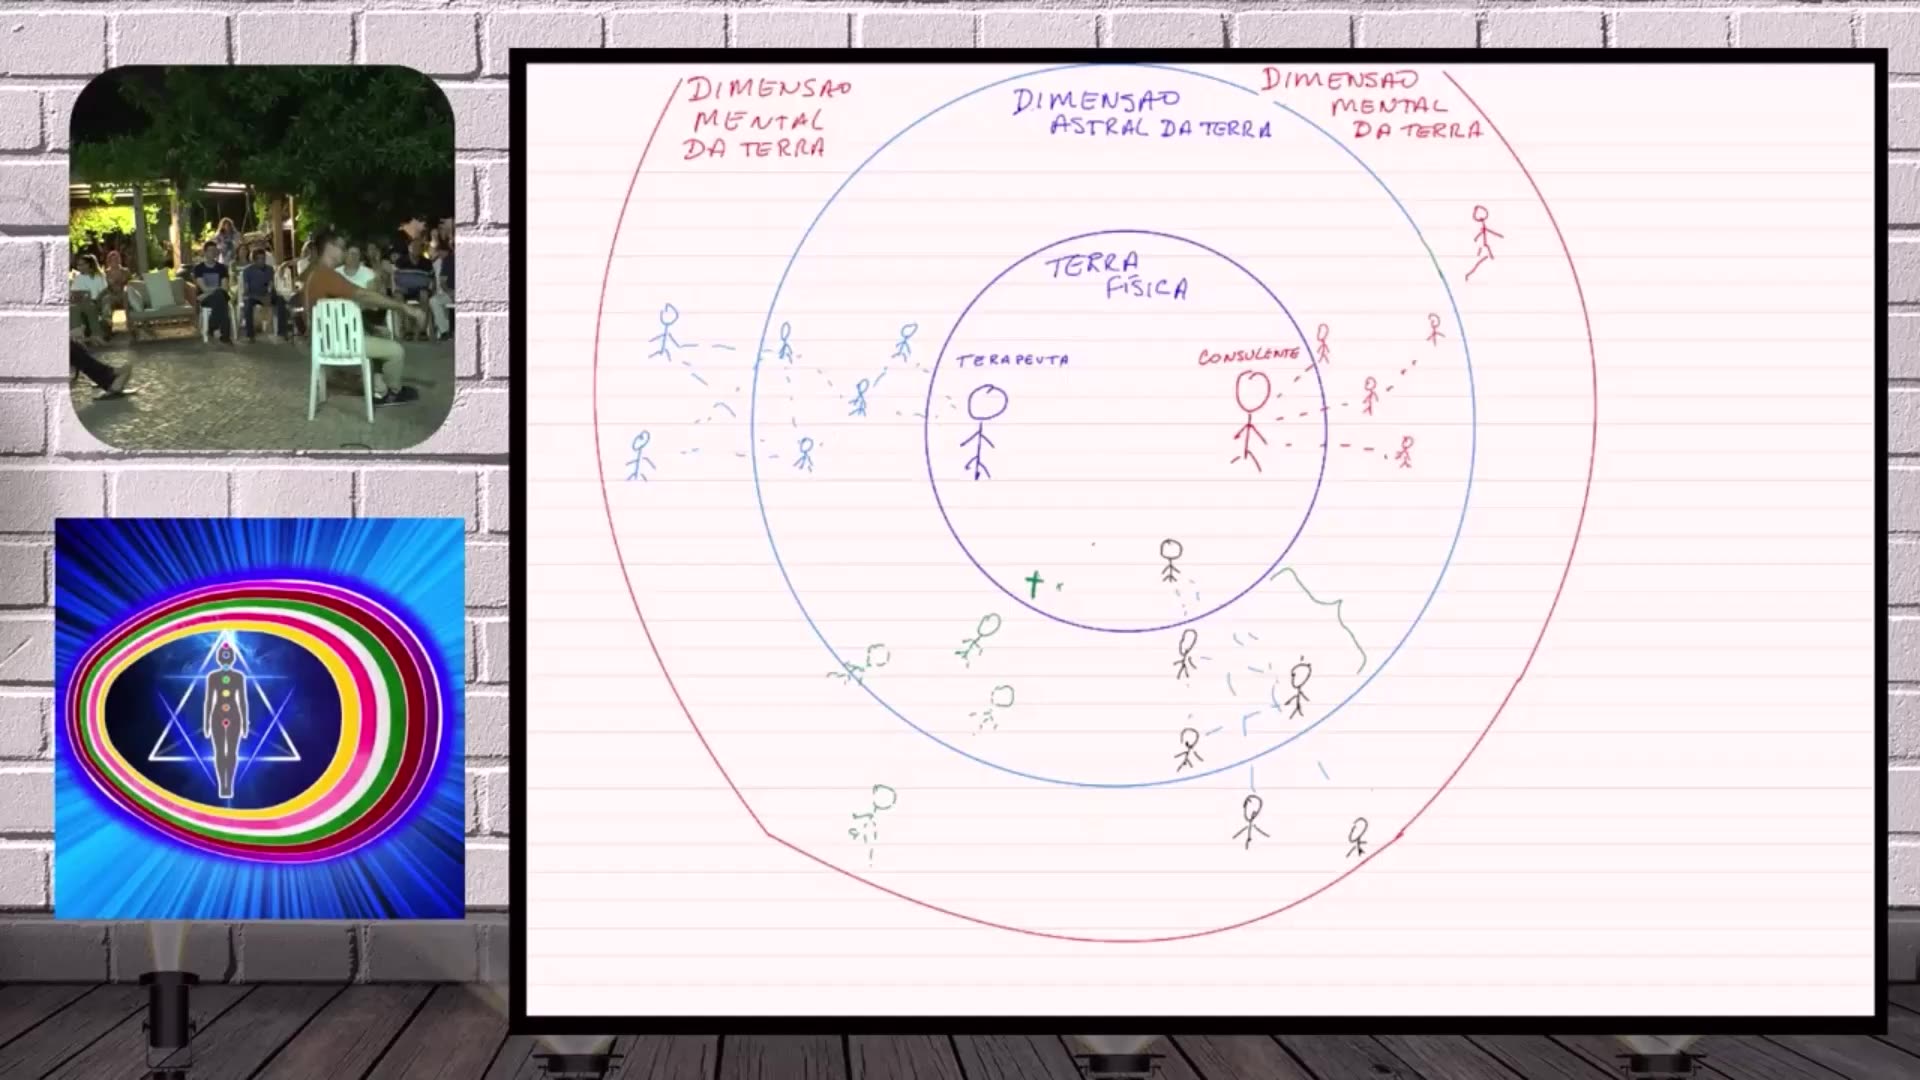 DIMENSAO
MENTAL
DA TERRA
DIMENSAO
ASTRAL DA TERRA
DIMENSAO
MENTAL
DA TERRA
TERRA
FÍSICA
TERAPEUTA
CONSULENTE